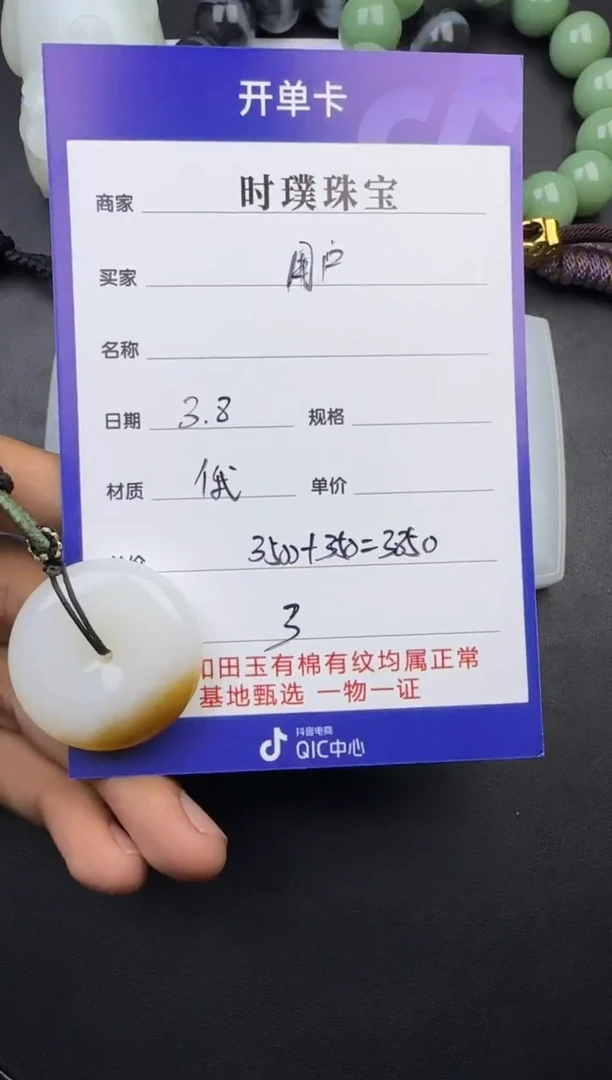 开单卡
商家 时璞珠宝
买家 用户
名称
日期 3.8 规格
材质 俄 单价
3500+350=3850
3
和田玉有棉有纹均属正常
基地甄选 一物一证
抖音电商
QIC中心